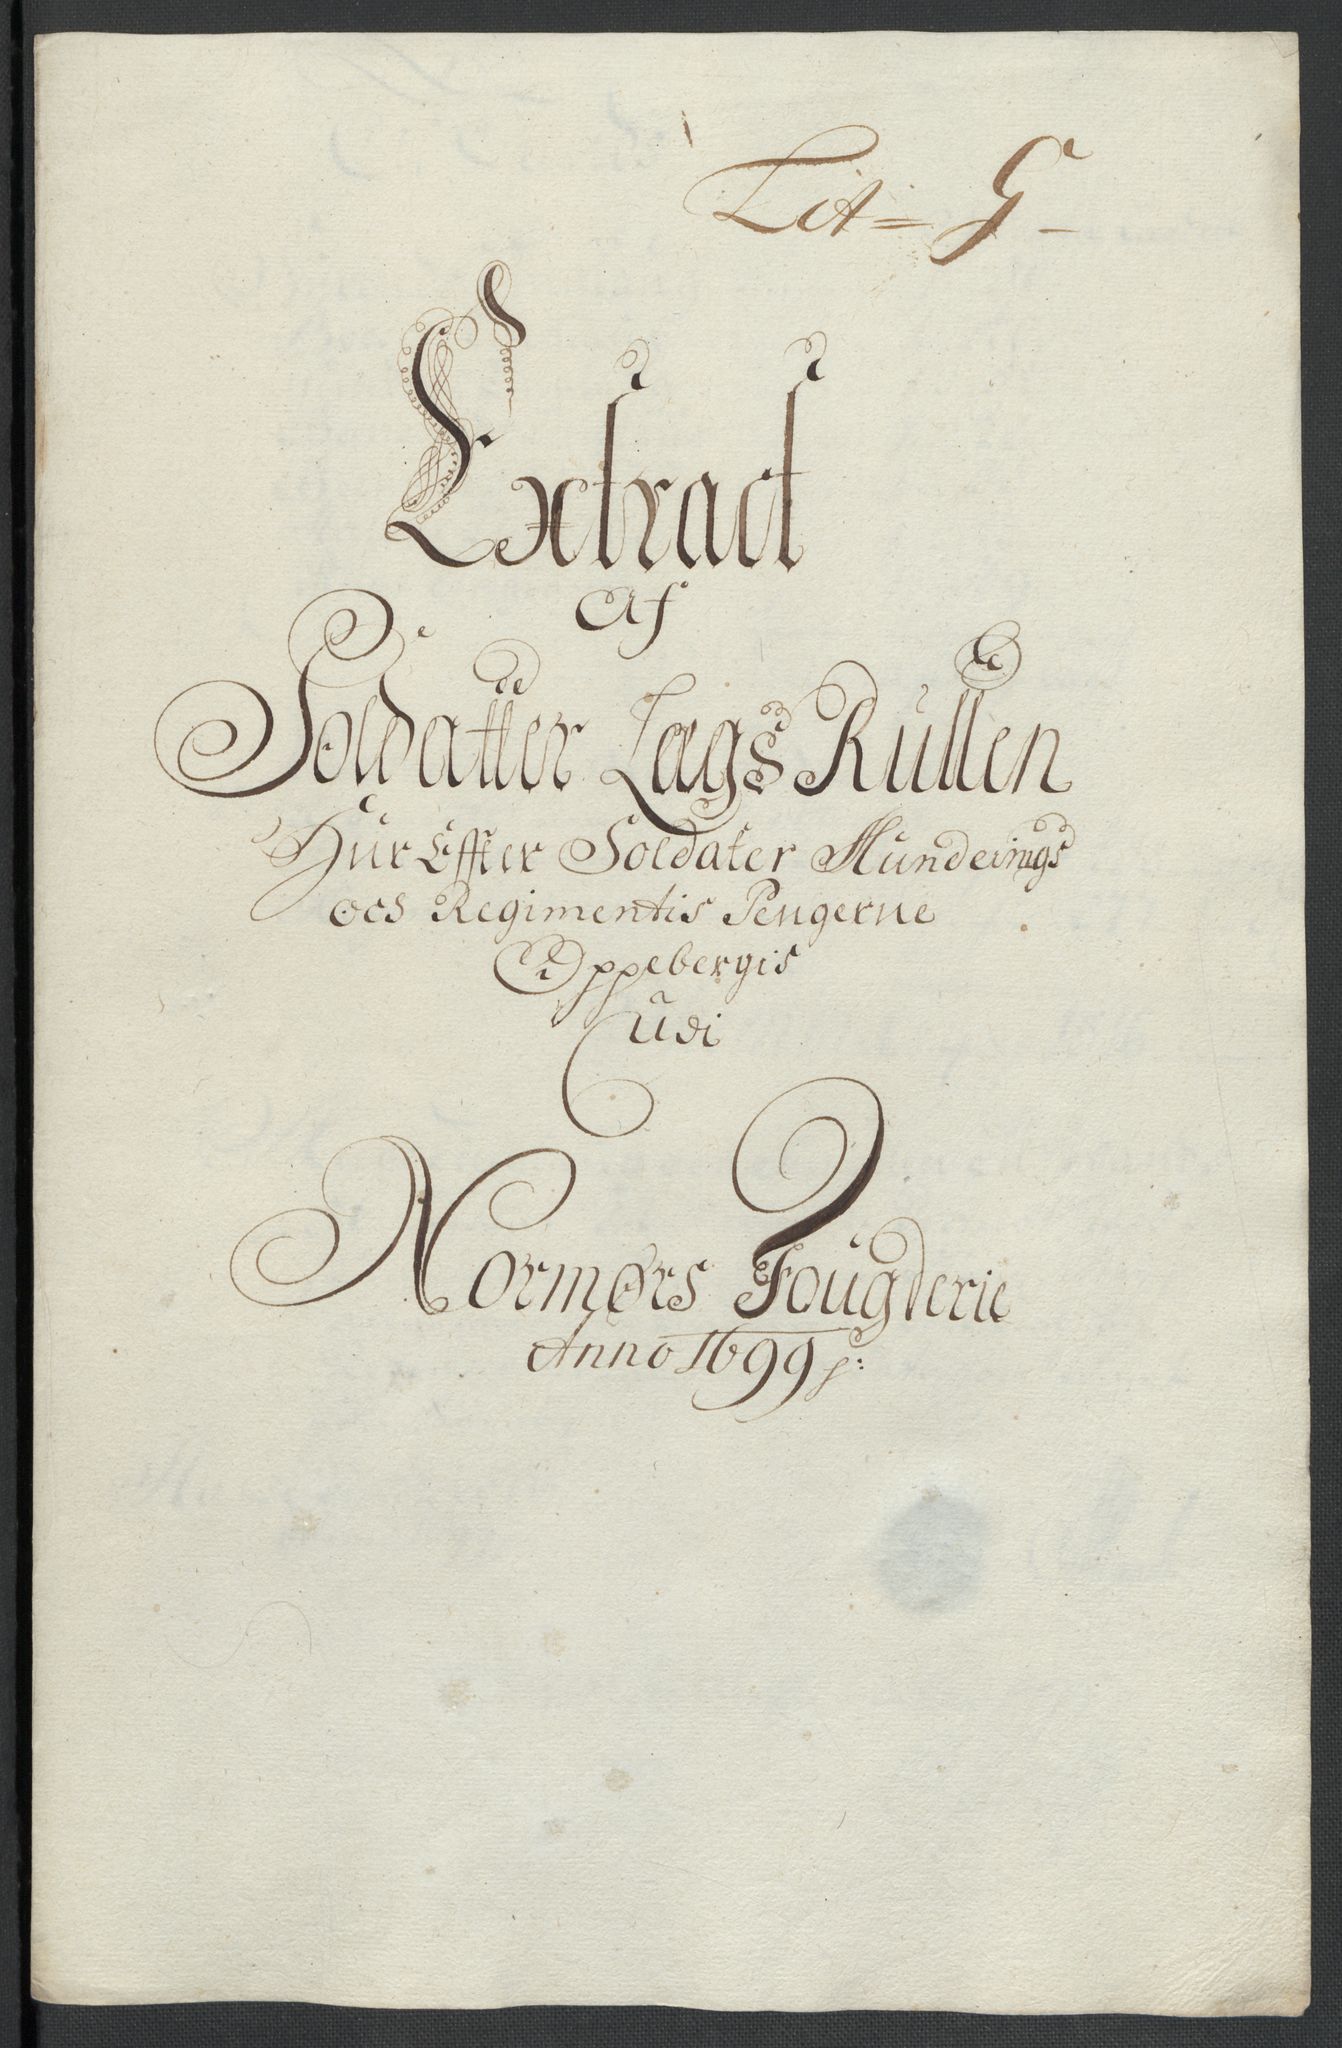 Lit = G -
Extract
Af
Soldatter Lægs Rullen
Hur Effter Soldater Munderings
och Regimentis Pengerne
Oppebergis
Udi
Normørs Fougderie
Anno 1699